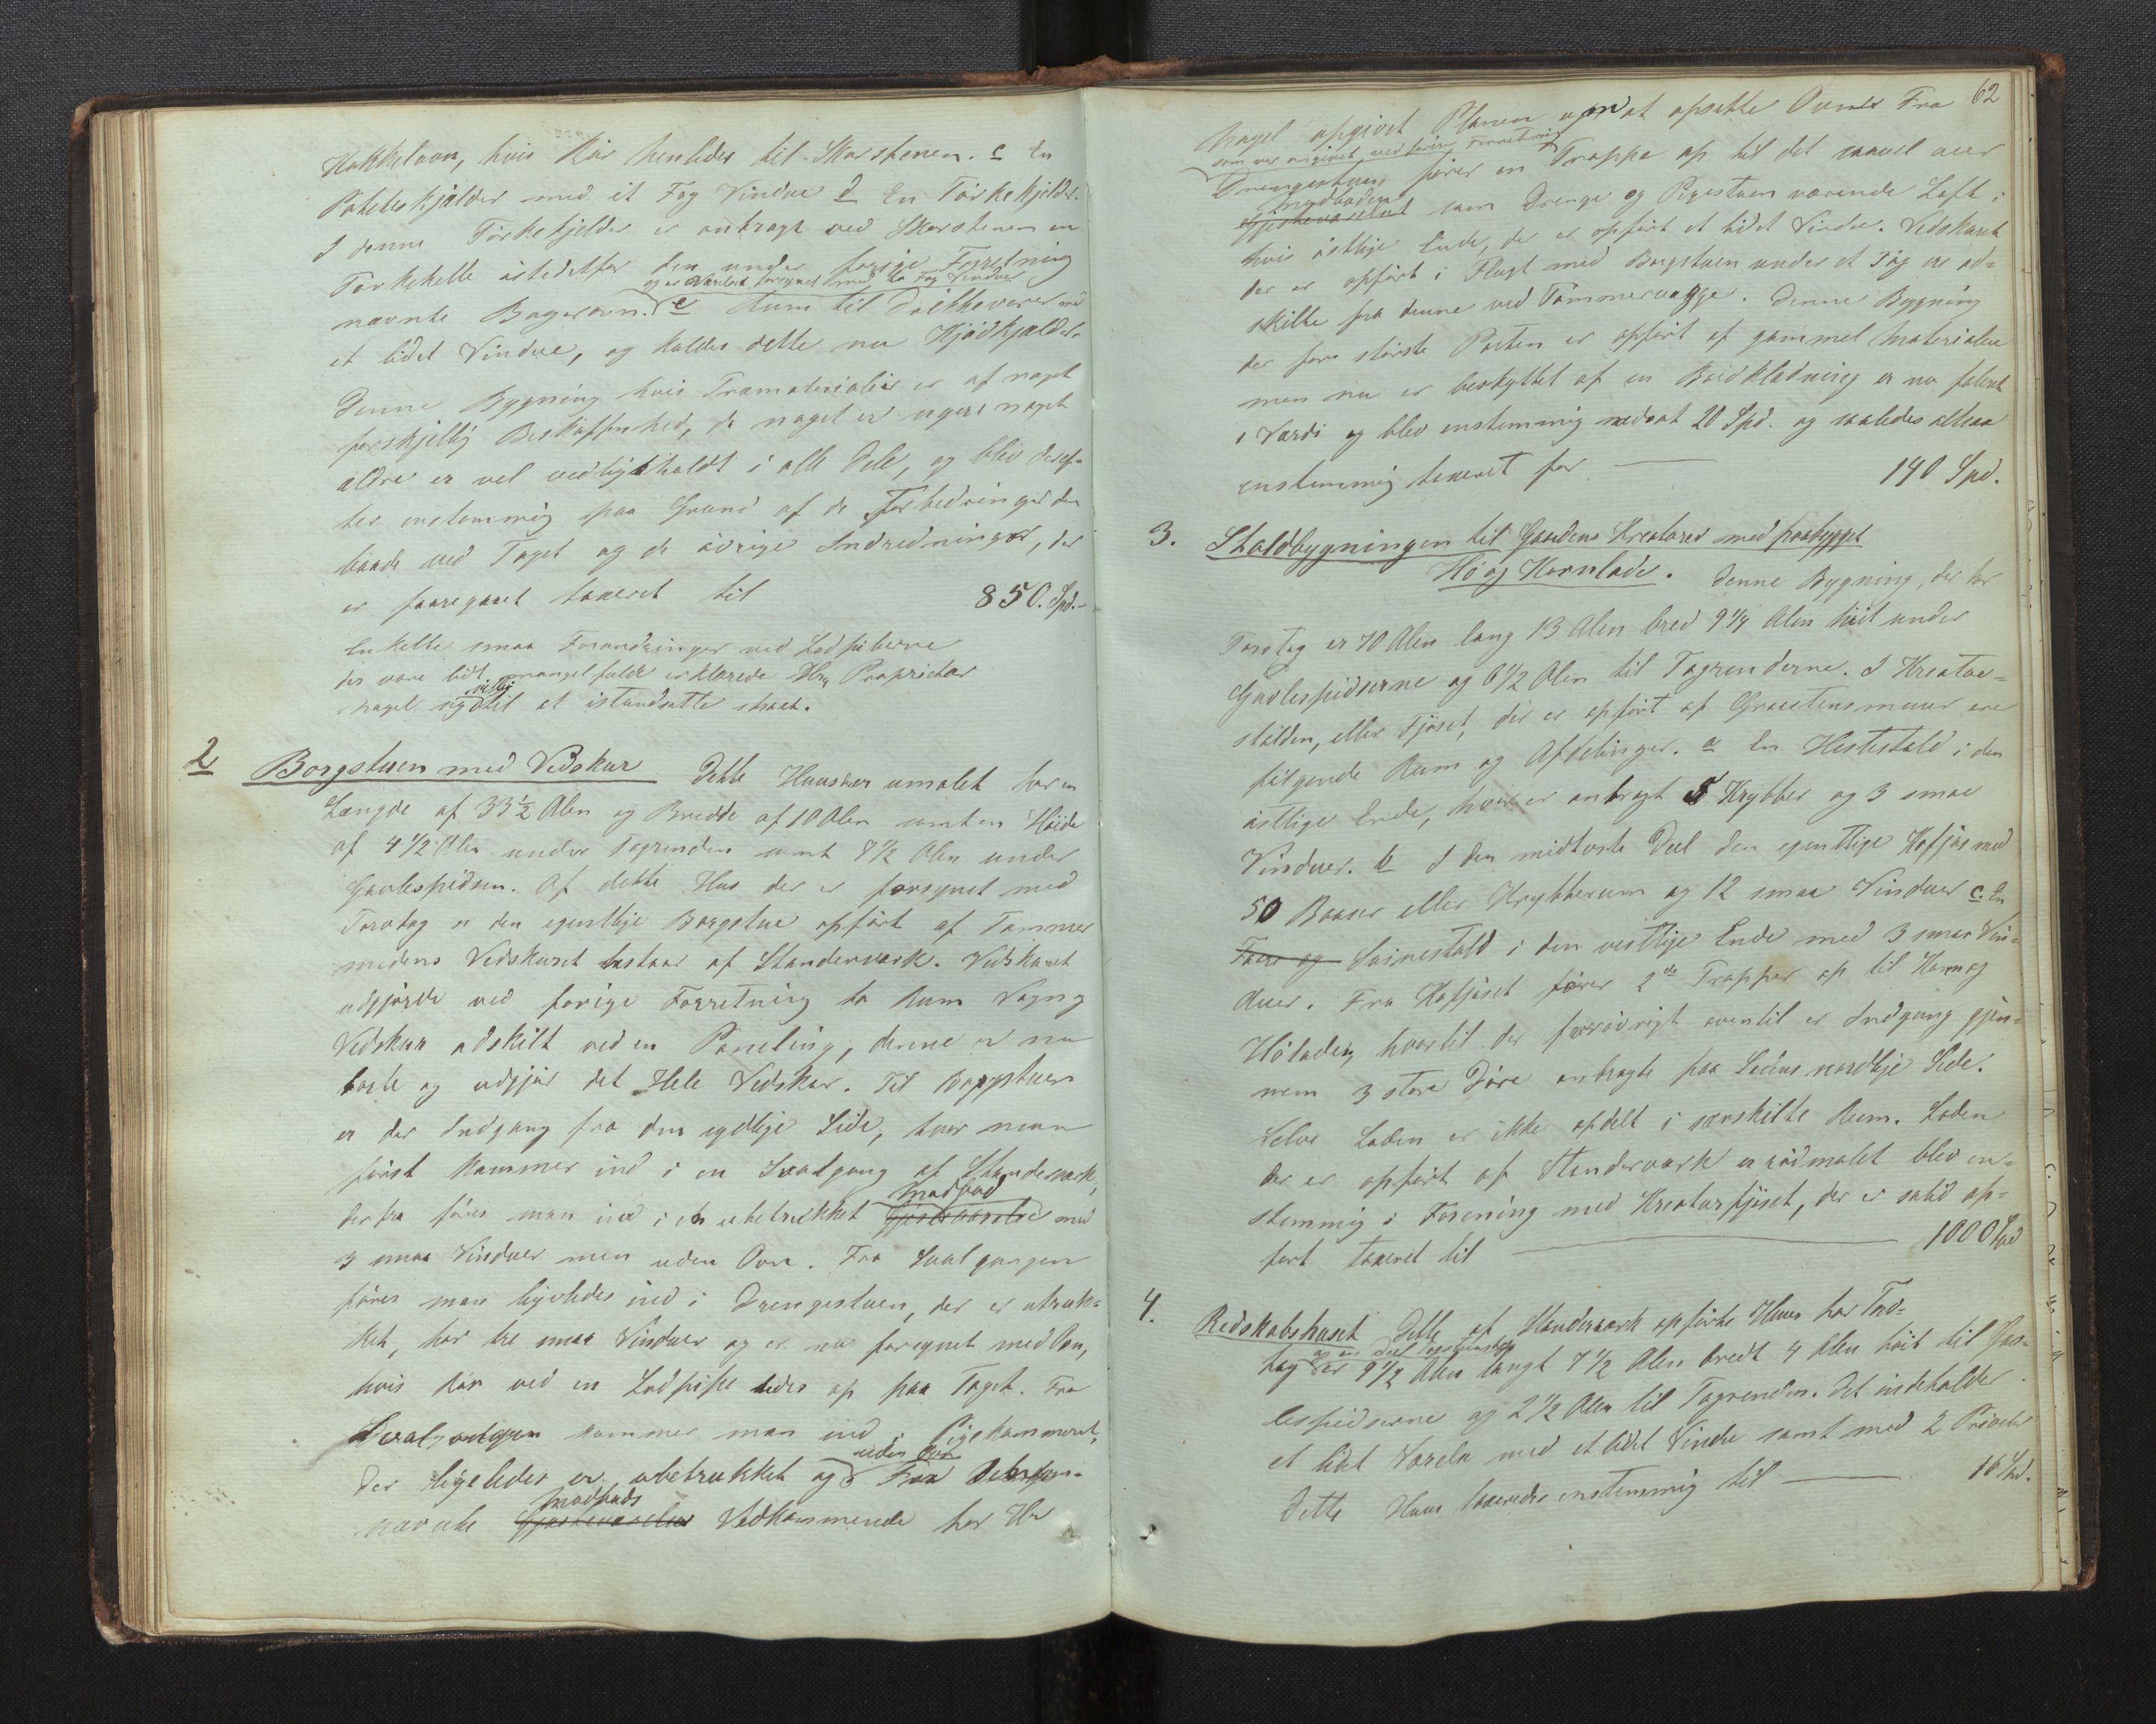 Kakkelovn, hvis Rør henledes til Skorstenen. c En
Poteteskjælder med et Fag Vindue d En Tørkekjelder.
I denne Tørkekjelder er anbragt ved Skorstenen en
Tørkekelle istedetfor den under forige Forretning
og er forsynet med to Fag Vinduer
nævnte Bagerovn. e Rum til Drikkevarer med
et lidet Vindue, og kaldes dette nu Kjødkjelder.
Denne Bygning hvis Træmaterialier er af noget
forskjellig Beskaffenhed, da noget er nyere noget
ældre er vel vedligeholdt i alle Dele, og blev deref-
ter enstemmig paa Grund af de Forbedringer der
baade ved Taget og de øvrige Indredninger, der
er foregaaet taxeret til 850. Spd.-
Enkelte smaa Forandringer ved Lodpiberne
der vare lidt mangelfulde erklærede Hr. Proprietær
Nagel sig villig til at istandsætte strax.
2 Borgstuen med Vedskur Dette Huus er umalet har en
Længde af 33½ Alen og Bredde af 10 Alen samt en Høide
af 4 1/2 Alen under Tagrenden samt 7½ Alen under
Gavlespidsen. Af dette Hus der er forsynet med
Torvtag er den egentlige Borgstue opført af Tømmer
medens Vedskuret bestaar af Standerværk. Vedskuret
udgjorde ved forige Forretning to Rum Vogn og
Vedskur adskilt ved en Paneling, denne er nu
borte og udgjør det Hele Vedskur. Til Borgstuen
er der Indgang fra den sydlige Side, hvor man
først kommer ind i en Svalgang af Standerværk,
Madbod
derfra føres man ind i en ubetrukket Gjesteværelse med
3 smaa Vinduer men uden Ovn. Fra Svalgangen
føres man ligeledes ind i Drengestuen, der er utruk-
ket, har tre smaa Vinduer og er nu forsynet med Ovn,
hvis Rør ved en Lodpipe ledes op paa Taget. Fra
Svalgangen kommer man ind i Pigekammeret,
uden Ovn
der ligeledes er ubetrukket og Fra Det
Madbods
nævnte Gjesteværelse Vedkommende har Hr
62
Nagel opgivet Planen om at opsætte Ovn Fra
som var angivet ved forige Forretning
Drengestuen fører en Trappe op til det saavel over
Madboden
Gjesteværelset som Drenge og Pigestuen værende Loft i
hvis østlige Ende, der er opført et lidet Vindue. Vedskuret
der er opført i Flugt med Borgstuen under et Tag er ad-
skilte fra denne ved Tømmervægge. Denne Bygning
der for største Parten er opført af gammel Materialer
men nu er beskyttet af en Bordklædning er nu falden
i Værdi og blev enstemmig nedsat 20 Spd. og saaledes altsaa
enstemmig taxeret for 190 Spd.
3. Staldbygningen til Gaardens Kreaturer med paabygget
Hø og Kornlade. Denne Bygning, der har
Torvtag er 70 Alen lang 13 Alen bred 9 1/4 Alen høit under
Gavlespidserne og 6 1/2 Alen til Tagrenderne. I Kreatur-
stalden, eller Fjøset, der er opført af Graastensmuur ere
følgende Rum og Afdelinger. a En Hestestald i den
østlige Ende, hvor er anbragt 5 Krybber og 3 smaa
Vinduer. b I den midterste Deel den egentlige Kofjøs med
50 Baaser eller Krybberum og 12 smaa Vinduer c. En
Faare og Svinestald i den vestlige Ende med 3 smaa Vin-
duer. Fra Kofjøset fører 2de Trapper op til Korn og
Høladen, hvortil der forøvrigt oventil er Indgang gjen-
nem 3 store Døre anbragte paa Ladens nordlige Side.
Selve Laden er ikke afdelt i særskilte Rum. Laden
der er opført af Stenderværk er rødmalet blev en-
stemmig i Forening med Kreaturfjøset, der er solid op-
ført taxeret til 1000 Spd
4. Redskabshuset Dette af Standerværk opførte Huus har Torv-
tag er 9 1/2 Alen langt 7 1/2 Alen bredt 4 Alen høit til Gav-
lespidserne og 2 1/2 Alen til Tagrenden. Det indeholder
et lidet Værelse med et lidet Vindue samt med 2 Priveter
Dette Huus taxeredes enstemmig til 10 Spd.